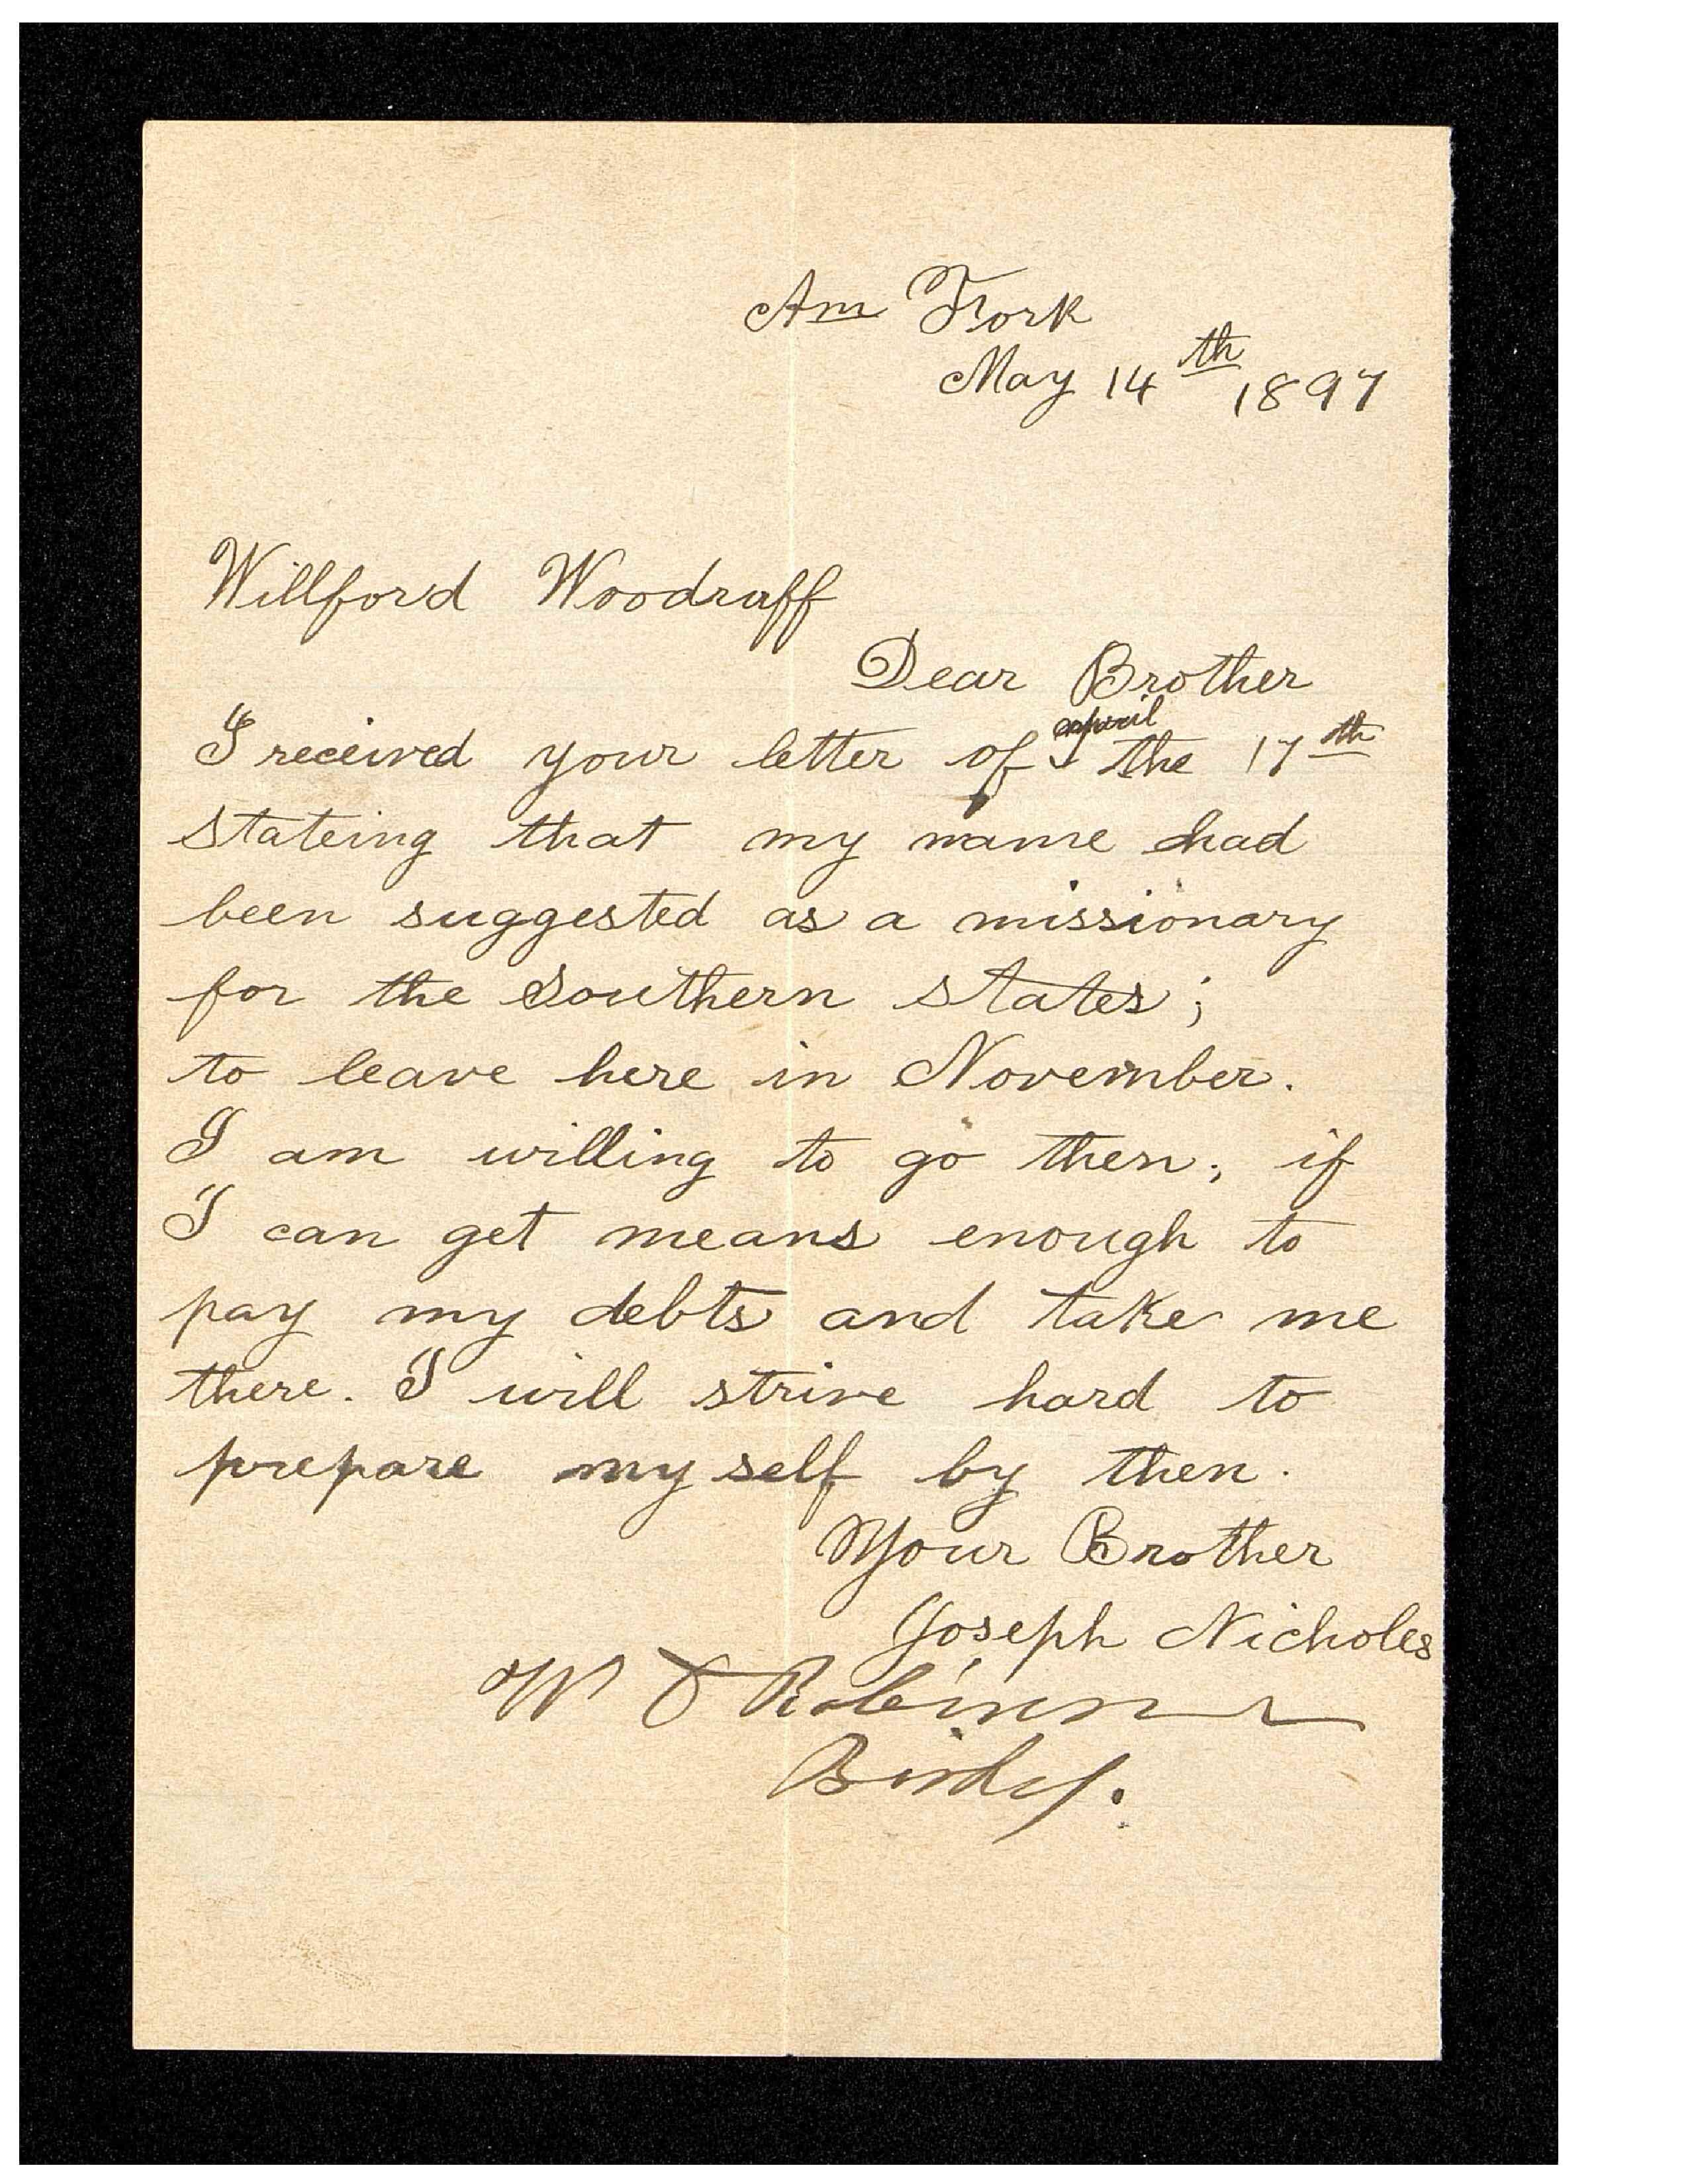 Am Fork
May 14th 1897
Willford Woodruff
Dear Brother
I received your letter of april the 17th
stateing that my name had
been suggested as a missionary
for the Southern states;
to leave here in November.
I am willing to go then, if
I can get means enough to
pay my debts and take me
there. I will strive hard to
prepare my self by then.
Your Brother
Joseph Nicholes
W Robinson
Bishop.